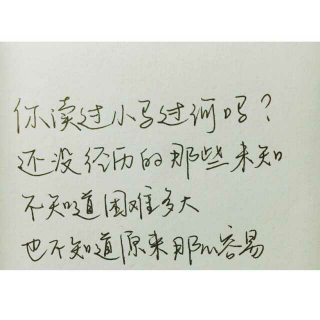 你读过小马过河吗？
还没经历的那些未知
不知道困难多大
也不知道原来那么容易